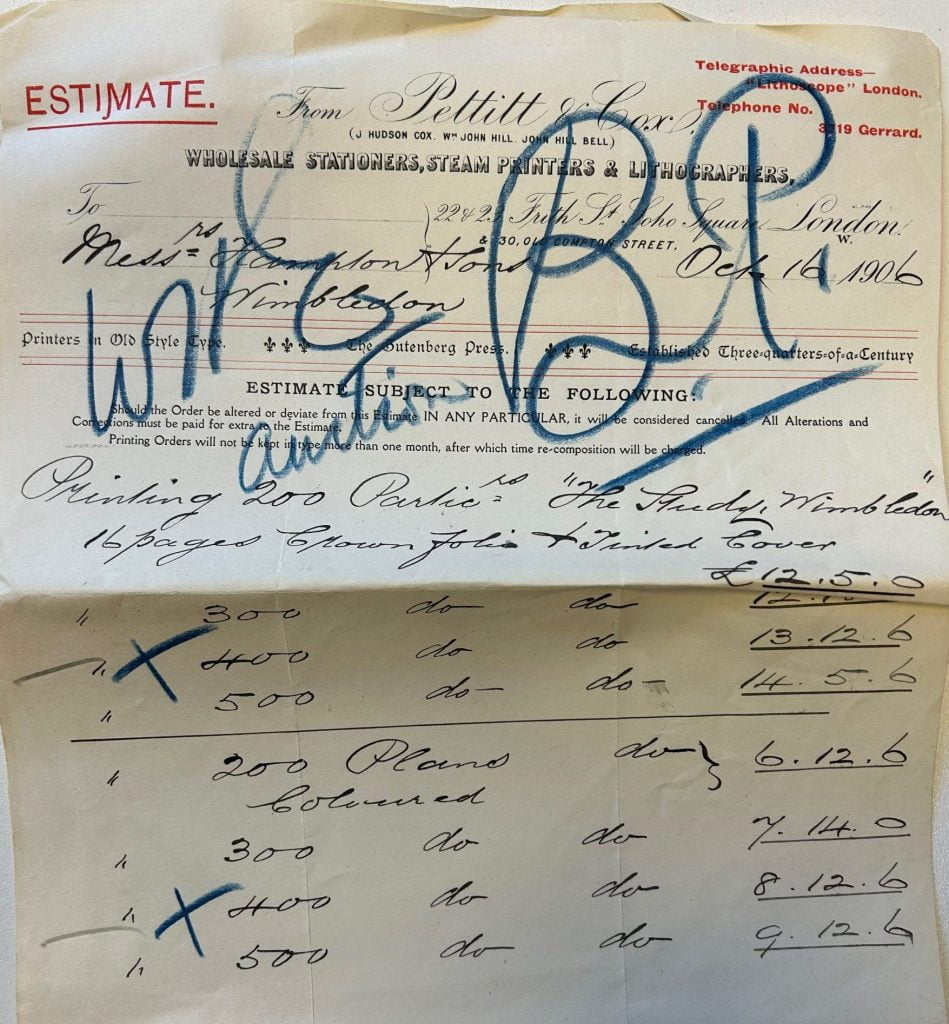 ESTIMATE.
Telegraphic Address—
"Lithoscope" London.
Telephone No.
3719 Gerrard.
From Pettitt & Cox,
(J HUDSON COX. Wᴹ JOHN HILL. JOHN HILL BELL)
WHOLESALE STATIONERS, STEAM PRINTERS & LITHOGRAPHERS,
To
22 & 23 Frith St. Soho Square, London. W.
& 30, OLD COMPTON STREET,
Messrs Hampton & Sons
Wimbledon
Oct 16 1906
B.P.
auction
Printers in Old Style Type. The Gutenberg Press. Established Three-quarters-of-a-Century
ESTIMATE SUBJECT TO THE FOLLOWING:
Should the Order be altered or deviate from this Estimate IN ANY PARTICULAR, it will be considered cancelled. All Alterations and
Corrections must be paid for extra to the Estimate.
Printing Orders will not be kept in type more than one month, after which time re-composition will be charged.
Printing 200 Particrs "The Study, Wimbledon"
16 pages Crown folio & Tinted Cover
£12.5.0
" 300 do do
" X 400 do do 13.12.6
" 500 do- do- 14.5.6
" 200 Plans do } 6.12.6
Coloured
" 300 do do 7.14.0
" X 400 do do 8.12.6
" 500 do do 9.12.6